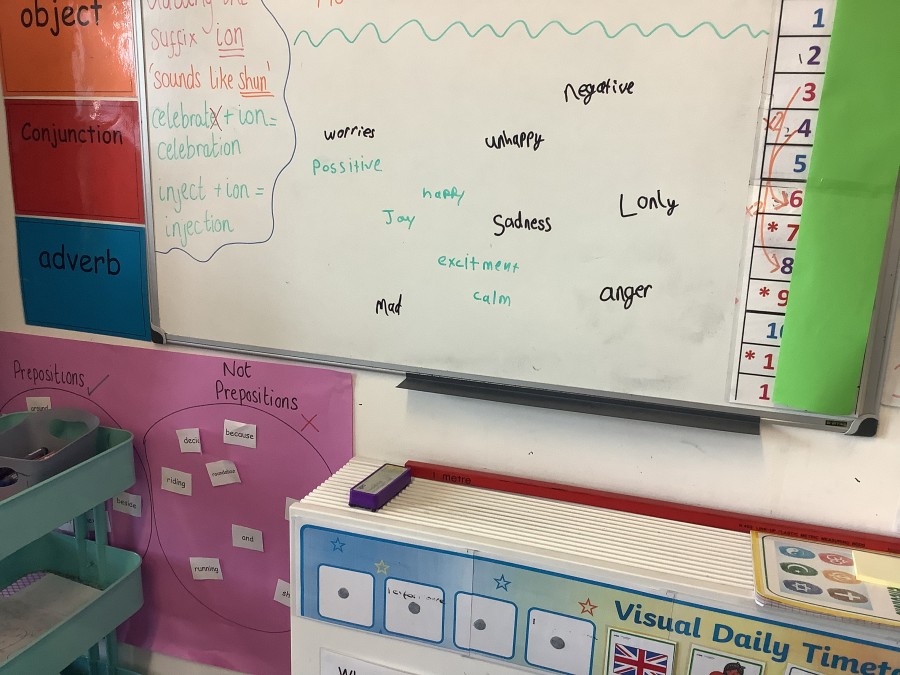 object
Conjunction
adverb
suffix ion
'sounds like shun'
celebrate + ion =
celebration
inject + ion =
injection
negative
worries
unhappy
Possitive
happy
Lonly
Joy
Sadness
excitment
calm
anger
Mad
1
2
3
4
5
6
* 7
8
* 9
Prepositions ✓
Not
Prepositions
around
because
riding
roundabout
beside
and
running
metre
Visual Daily